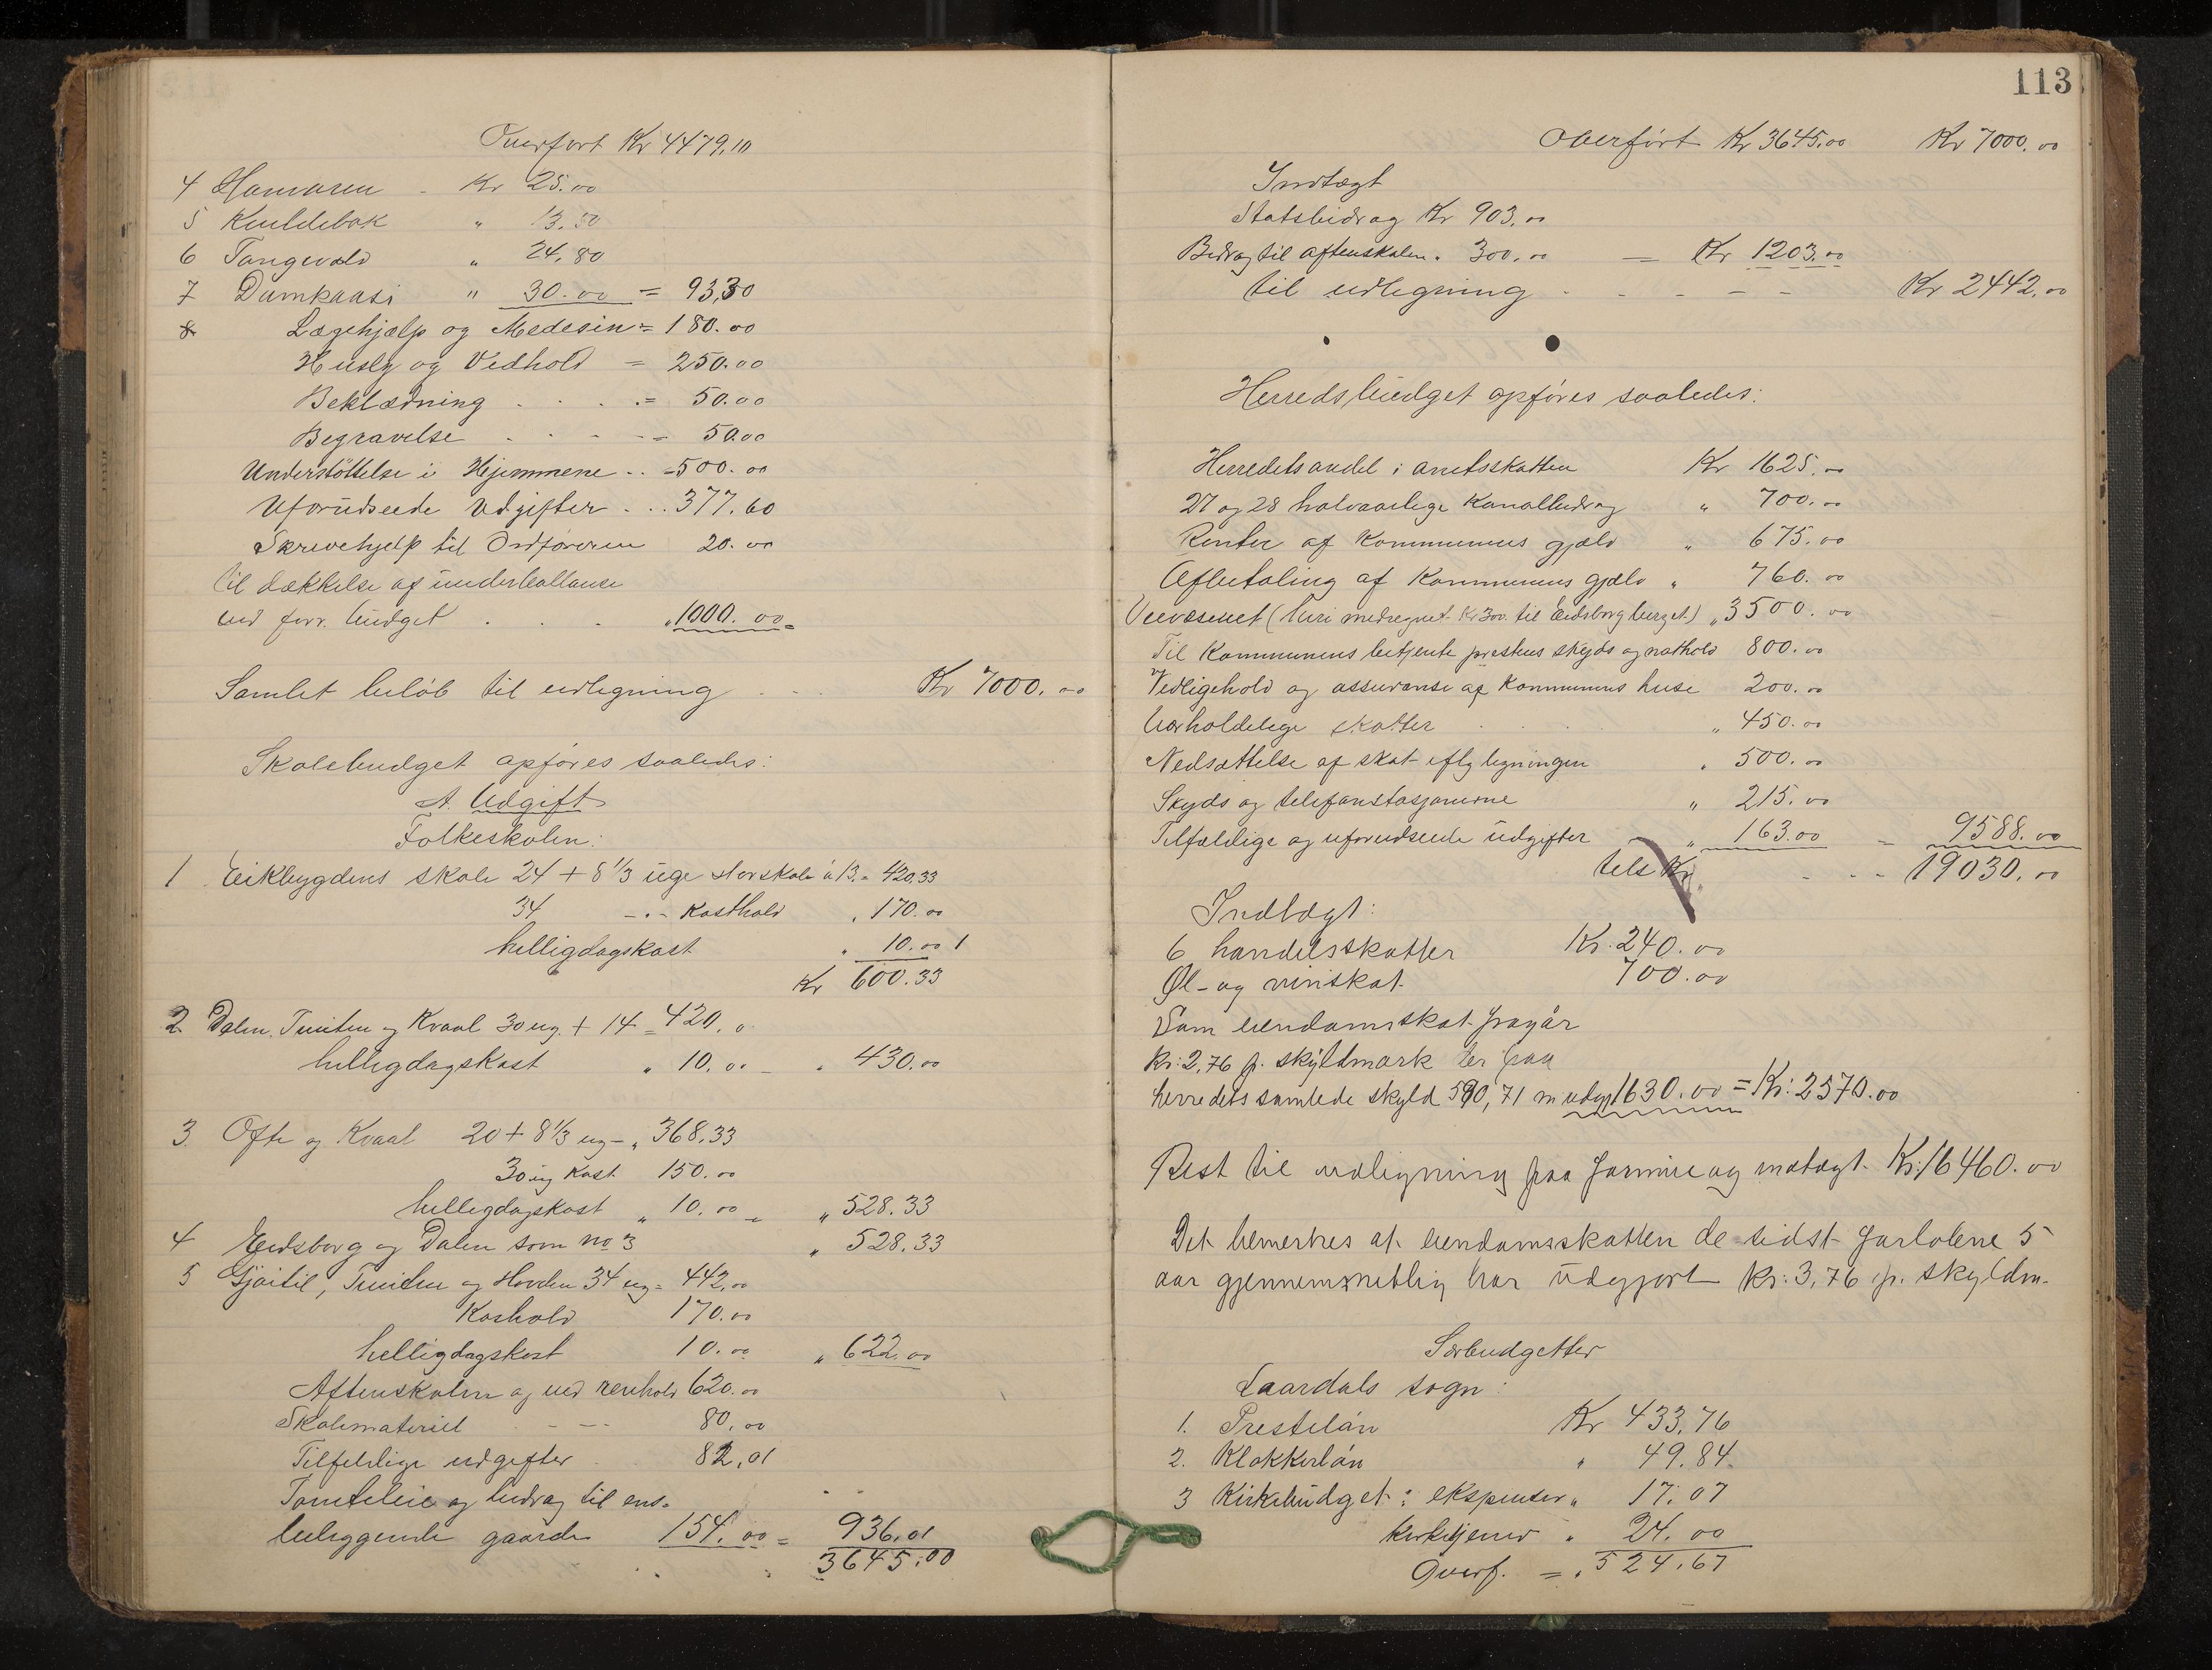 Overført Kr 4479,10
4 Hamaren - Kr 25.00
5 Kuldebak " 13.50
6 Tangevald " 24.80
7 Dumkaasi " 30.00 = 93,30
8 Lægehjælp og Medesin = 180.00
Husly og Vedhold = 250.00
Beklædning . . . .= 50.00
Begravelse . . . -= 50.00
Understøttelse i Hjemmene .. =500.00
Uforudseede Udgifter . .. 377.60
Skrivehjelp til Ordføreren 20.00
til dækkelse af underballanse
ved forr. budget . . . "1000.00=
Samlet beløb til udlegning . . . Kr 7000.00
Skolebudget opføres saaledes:
A. Udgift
Folkeskolen:
1 Eikbygdens skole 24 + 8 1/3 uge storskole à 13. = 420,33
34 -"- Kosthold " 170.00
helligdagskost " 10.00 1
Kr 600.33
2. Dalen, Tveiten og Kvaal 30 ug. + 14 = 420.0
helligdagskost " 10.00 - " 430.00
3. Ofte og Kvaal 20 + 8 1/3 ug - " 368.33
30 ug Kost 150.00
helligdagskost " 10.00 = " 528.33
4 Eidsborg og Dalen som no 3 " 528.33
5 Gjøitil, Tveiten og Hovden 34 ug = 442.00
Koshold 170.00
helligdagskost 10.00 " 622.00
Aftenskolen og ved renhold 620.00
Skolemateriel - -- 80.00
Tilfeldige udgifter . 82,01
Tomteleie og bidrag til ens-
beleggende gaarde 154.00 = 936.01
3645.00
113
Overført Kr 3645.00 Kr 7000.00
Indtægt
Statsbidrag Kr 903.00
Bidrag til aftenskolen " 300.00 = Kr 1203.00
til udlegning - - - - - Kr 2442.00
Herredsbudget opføres saaledes:
Herredets andel i amtsskatten Kr 1625.00
27 og 28 halvaarlige Kanalbidrag " 700.00
Renter af Kommunens gjæld " 675.00
Afbetaling af Kommunens gjæld " 760.00
Veivæsenet (heri medregnet Kr 300 til Eidsborg berget) " 3500.00
Til Kommunens betjente prestens skyds og nathold 800.00
Vedligehold og assuranse af Kommunens huse 200.00
Uerholdelige skatter . . . " 450.00
Nedsættelse af skat eflg ligningen " 500.00
Skyds og telefonstasjonerne " 215.00
Tilfældige og uforudseede udgifter " 163.00 = 9588.00
tels Kr. . . - 19030.00
Indtægt:
6 handelsskatter Kr. 240.00
Øl- og vinskat 700.00
Som eiendomsskat fragår
kr: 2,76 p. skyldmark der paa
herredets samlede skyld 590,71 m udgj 1630.00 = Kr: 2570.00
Rest til udligning paa formue og indtægt Kr: 16460.00
Det bemerkes at eiendomsskatten de sidst forløbene 5
aar gjennemsnetlig har udgjort kr: 3,76 p. skyldm.
Særbudgetter
Laardals sogn:
1. Prestelån Kr 433,76
2. Klokkerlån " 49.84
3 Kirkebudget: ekspenser " 17.07
kirketjener " 24.00
Overf. = " 524.67